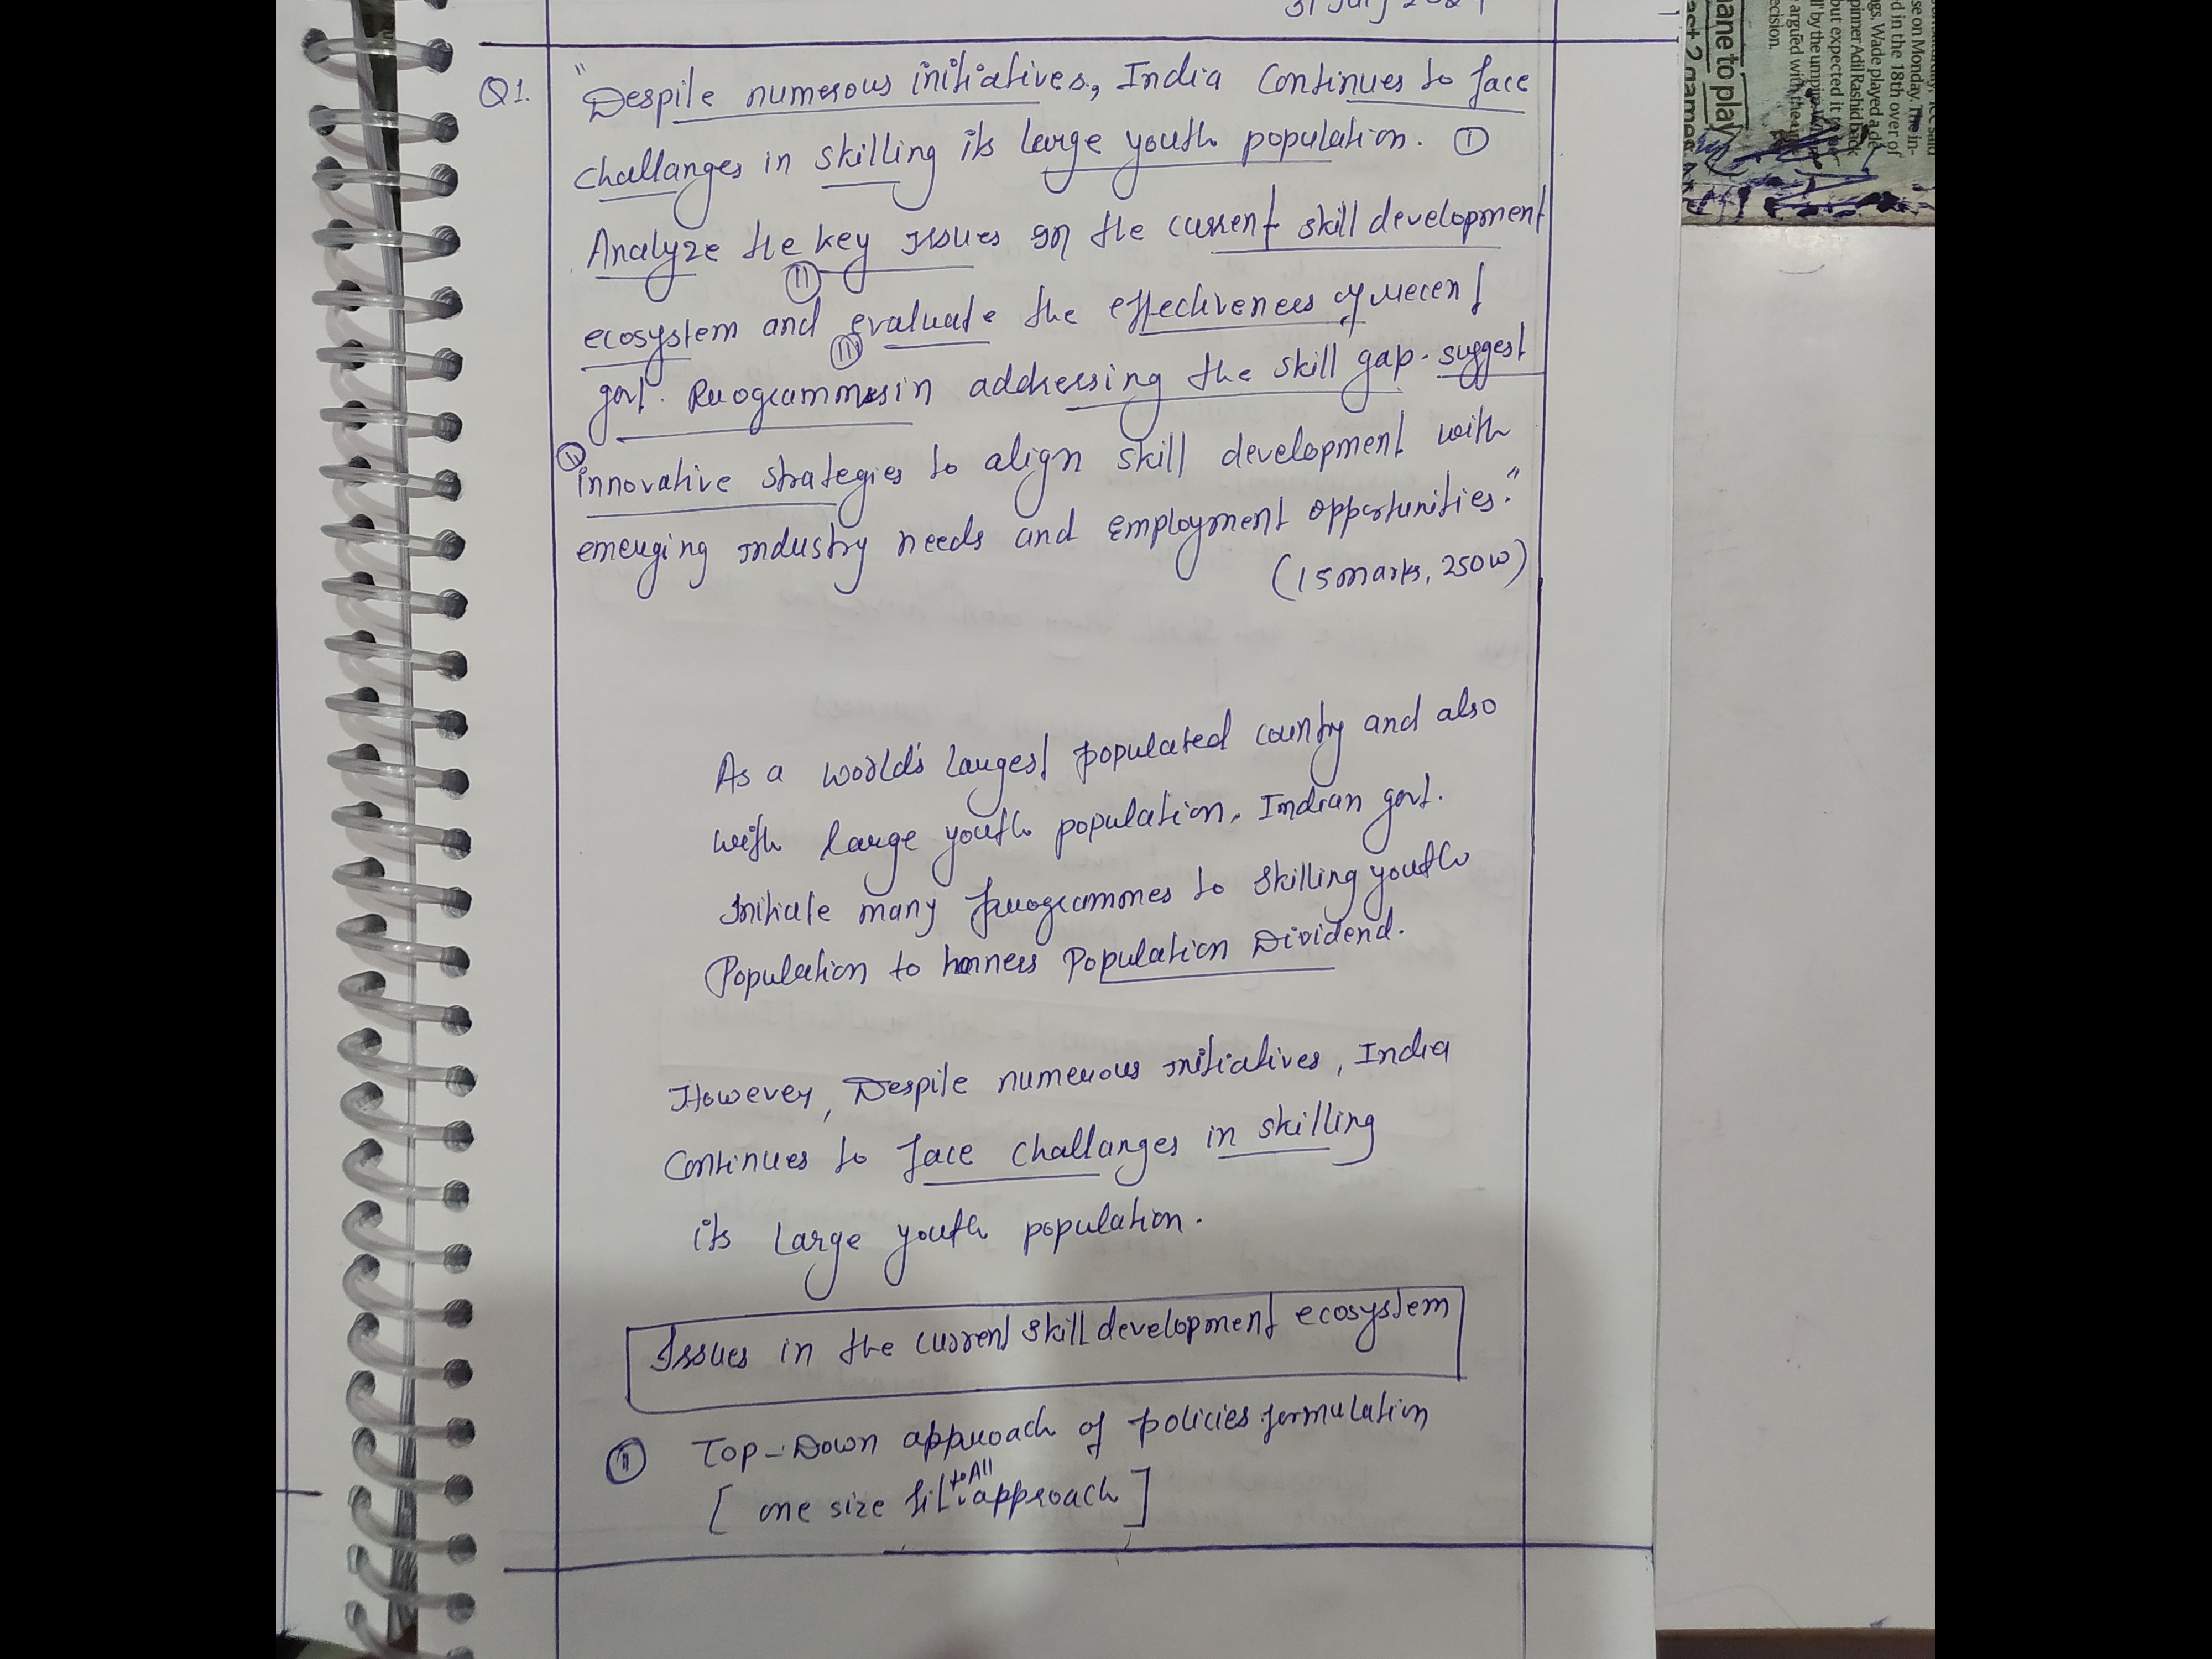 31 July 2024
Q1. "Despite numerous initiatives, India Continues to face
challanges in skilling its large youth population. I
Analyze the key issues in the current skill development
II
ecosystem and evaluate the effectiveness of recent
III
govt. Programmes in addressing the skill gap. suggest
innovative strategies to align skill development with
emerging industry needs and employment opportunities."
(15 marks, 250w)
As a world's largest populated country and also
with large youth population, Indian govt.
Initiate many programmes to skilling youth
Population to harness Population Dividend.
However, Despite numerous initiatives, India
Continues to face challanges in skilling
its large youth population.
Issues in the current skill development ecosystem
I Top-Down approach of policies formulation
[ one size fit to All approach ]
se on Monday. The in-
d in the 18th over of
gs, Wade played a de
pinner Adil Rashid back
but expected it
ll by the umpire
argued with the
ecision.
ane to play
ast 2 games